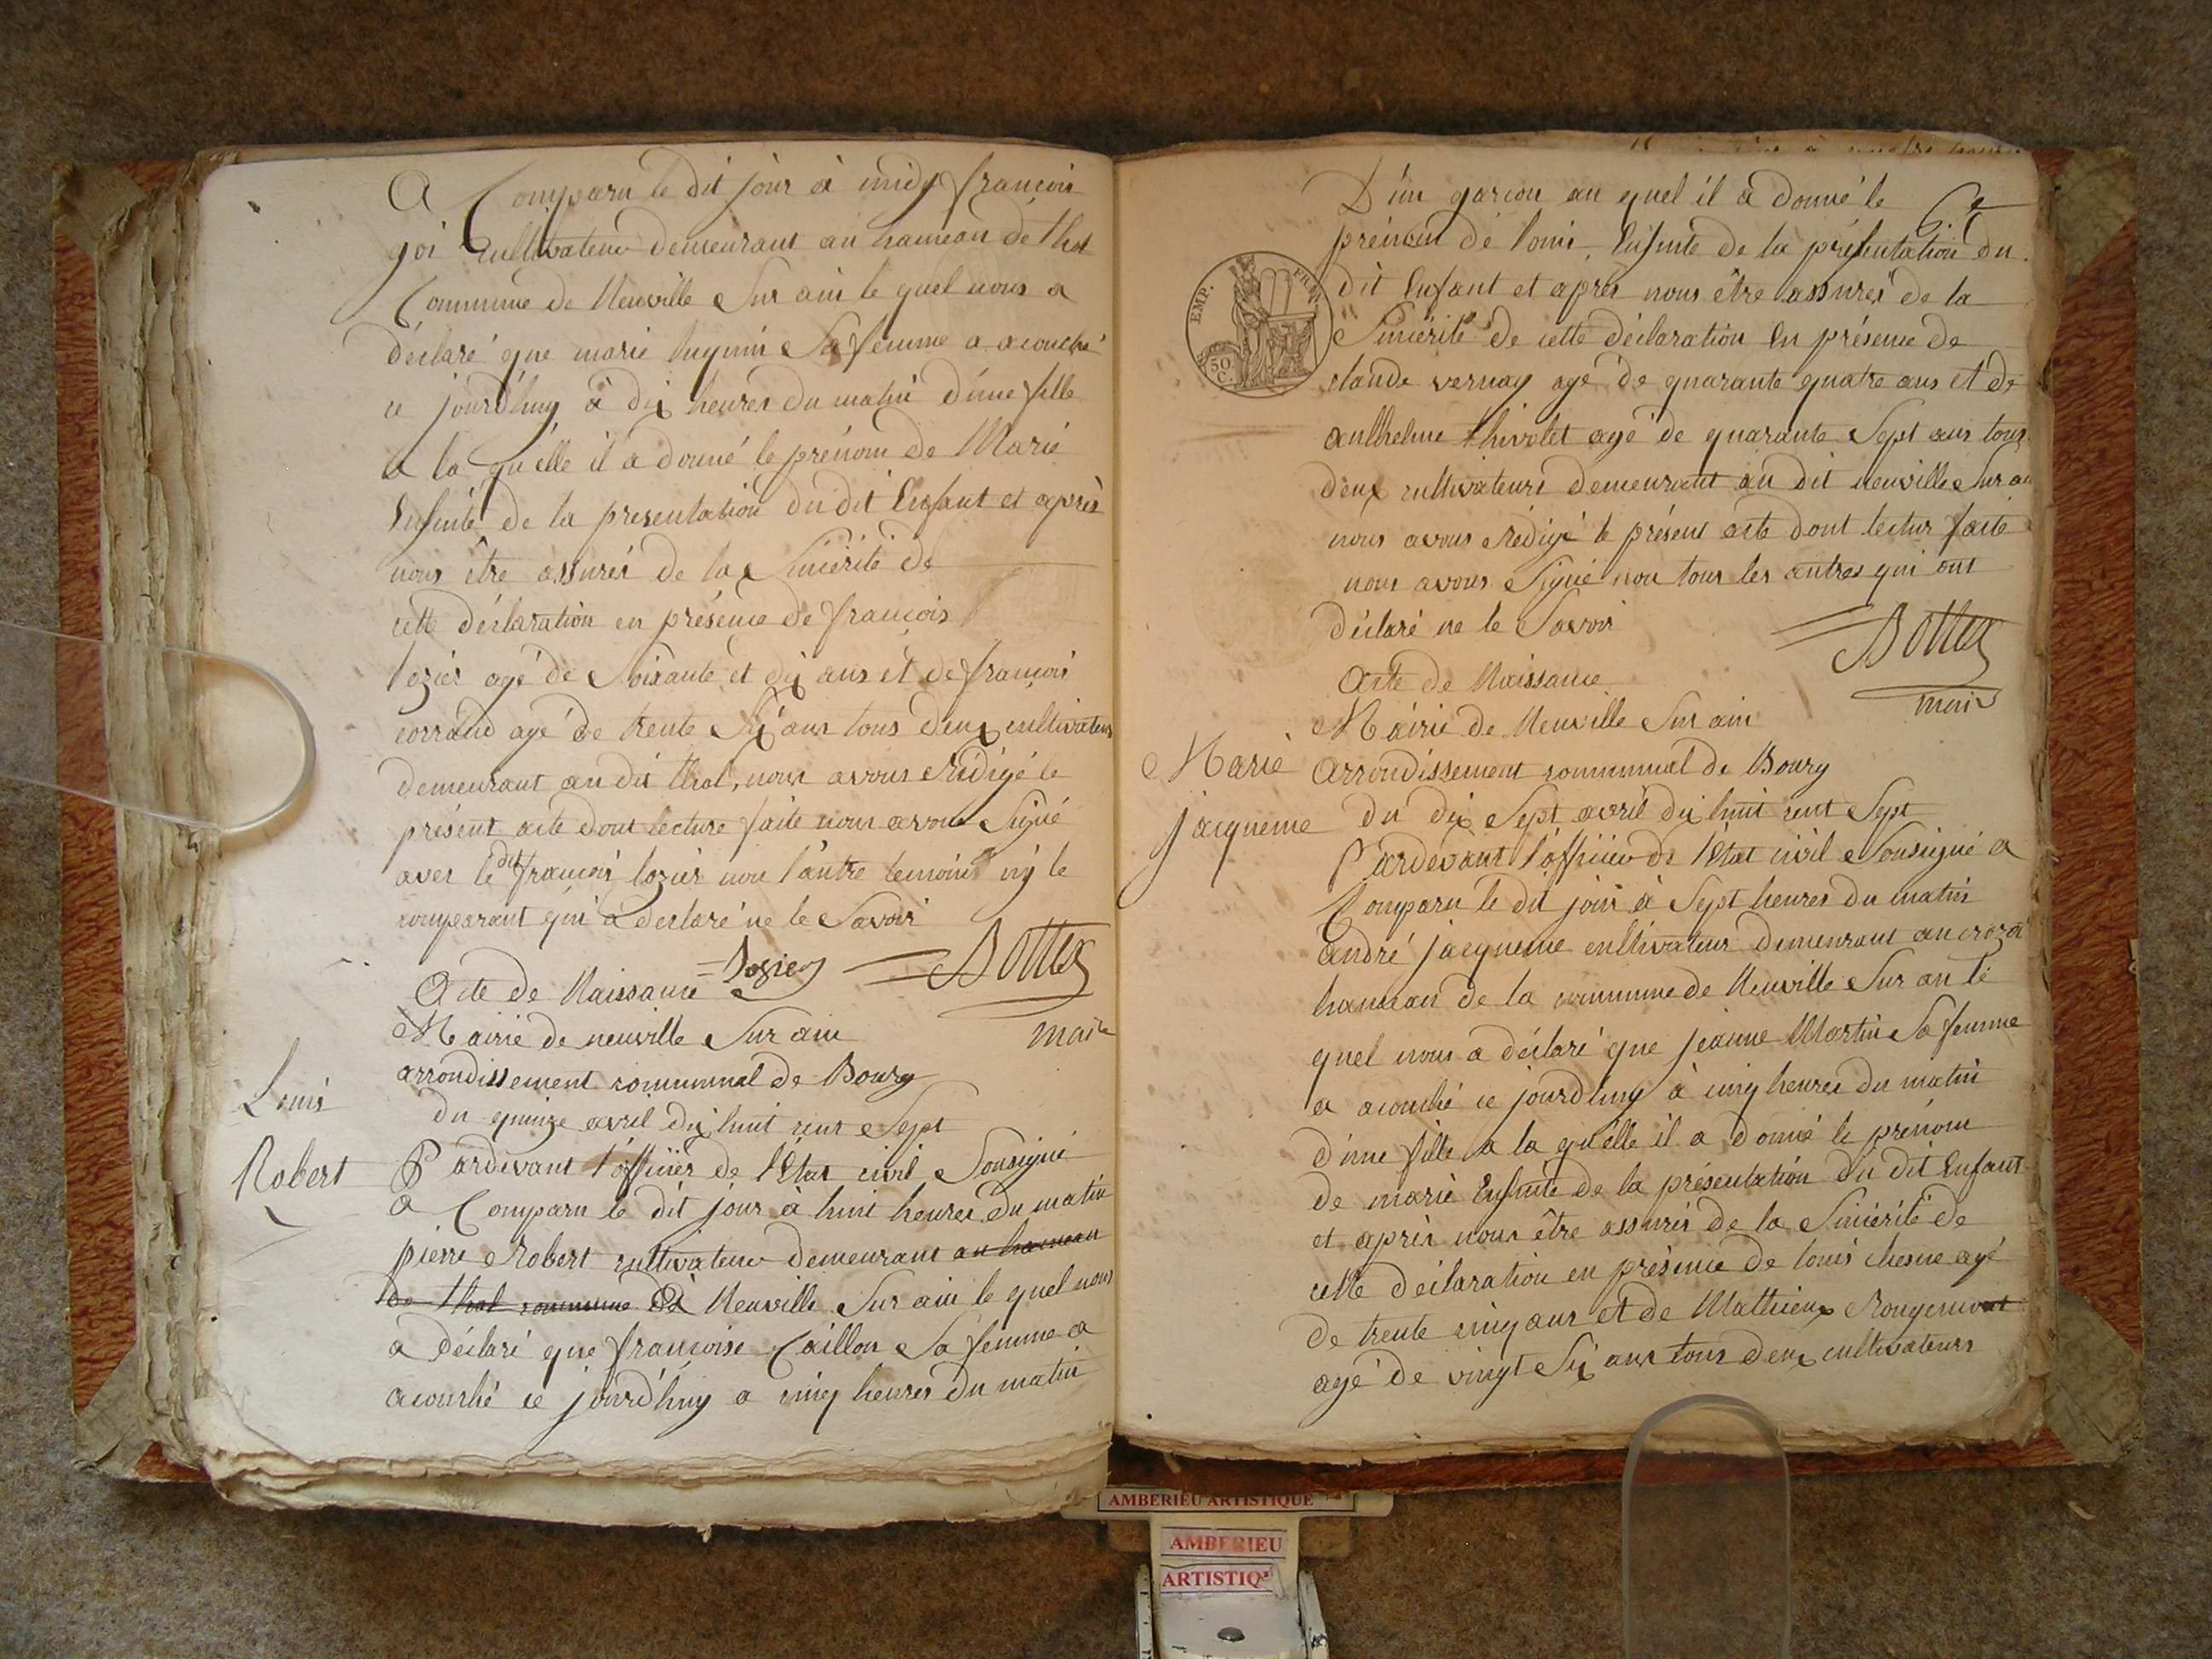 A Comparu le dit jour à midy françois
goi cultivateur demeurant au hameau de thol
Commune de Neuville Sur ain le quel nous a
déclaré que marie Sa femme a acouché
ce jourd'huy à dix heures du matin d'une fille
a la qu'elle il a donné le prénom de Marie
Ensuite de la presentation du dit Enfant et après
nous être assurés de la Sincérité de
cette déclaration en présence de françois
lozier agé de Soixante et dix ans et de françois
corrand agé de trente Six ans tous deux cultivateurs
demeurant au dit thol, nous avons Rédigé le
présent acte dont lecture faite nous avons Signé
avec le dit françois lozier non l'autre temoins ny le
comparant qui a declaré ne le Savoir
Lozier Bottex
maire
Acte de Naissance
Mairie de neuville Sur ain
arrondissement communal de Bourg
Louis
Robert
du quinze avril dix huit cent Sept
Pardevant l'officier de l'Etat civil Sousigné
A Comparu le dit jour à huit heures du matin
pierre Robert cultivateur demeurant au hameau
de thol commune dé Neuville Sur ain le quel nous
a déclaré que françoise Caillon Sa femme a
acouché ce jourd'huy a cinq heures du matin
D'un garcon au quel il a donné le
prénom dé louis, Ensuite de la présentation du
dit Enfant et après nous être assurés de la
Sincérité de cette déclaration En présence de
claude vernay agé de quarante quatre ans et de
anthelme thivolet agé de quarante Sept ans tous
deux cultivateurs demeurant au dit neuville Sur ain
nous avons Rédigé le présent acte dont lectur faite
nous avons Signé non tous les autres qui ont
déclaré ne le Savoir
Bottex
maire
EMP. FRAN.
50 C.
Acte de Naissance
Mairie de Neuville Sur ain
Marie
jacqueme
arrondissement communal de Bourg
du dix Sept avril dix huit cent Sept
Pardevant l'officier de l'Etat civil Sousigné a
Comparu le dit jour à Sept heures du matin
andré jacqueme cultivateur demeurant au croza
hameau de la commune de Neuville Sur an le
quel nous a déclaré que jeanne Martin Sa femme
a acouché ce jourd'huy à cinq heures du matin
d'une fille a la qu'elle il a donné le prénom
de marie Ensuite de la présentation du dit Enfant
et après nous être assurés de la Sincérité de
cette déclaration en présence de louis chesne agé
de trente cinq ans et de Mathieux Rougemont
agé de vingt Six ans tous deux cultivateurs
AMBERIEU ARTISTIQUE
AMBERIEU
ARTISTIQ